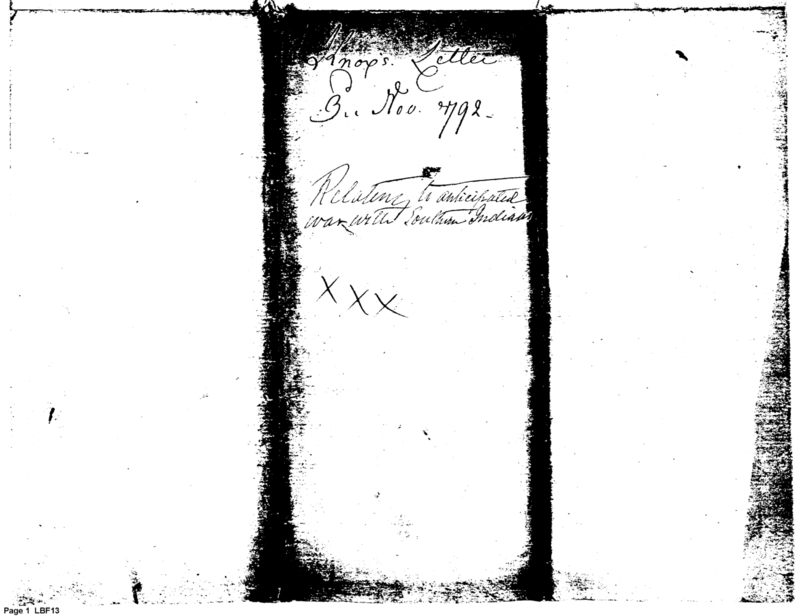 Knox's. Letter
3rd Nov. 1792.
Relating to anticipated
war with Southern Indians
X X X
Page 1 LBF13